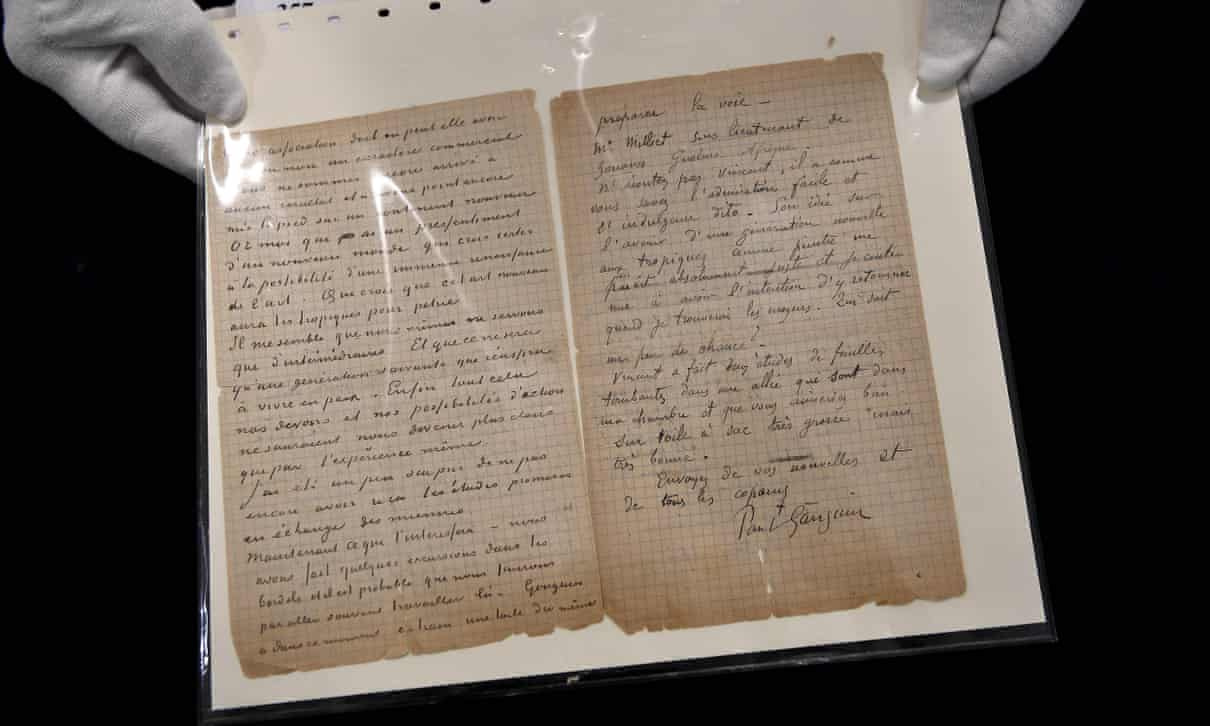 257
association dont on peut elle avoir
commun un caractère commercial
nous ne sommes encore arrivé à
aucun resultat et à peine point encore
mis le pied sur un continent nouveau
Or moi qui ai un pressentiment
d'un nouveau monde qui crois certes
à la possibilité d'une immense renaissance
de l'art. Qui crois que cet art nouveau
aura les tropiques pour patrie.
Il me semble que nous mêmes ne servons
que d'intermédiaires. Et que ce ne sera
qu'une génération suivante qui réussira
à vivre en paix. Enfin tout cela
nos devoirs et nos possibilités d'action
ne sauraient nous devenir plus clairs
que par l'expérience même.
J'ai été un peu surpris de ne pas
encore avoir reçu les études promises
en échange des miennes
Maintenant ce que t'interessera – nous
avons fait quelques excursions dans les
bordels et il est probable que nous finirons
par aller souvent travailler là. Gauguin
a dans ce moment en train une toile du même
préparer la voie –
Mr Milliet sous lieutenant de
Zouaves Guelma Afrique.
N'écoutez pas Vincent, il a comme
vous savez l'admiration facile et
et indulgence dito. Son idée sur
l'avenir d'une génération nouvelle
aux tropiques comme peintre me
parait absolument juste et je contin
nue à avoir l'intention d'y retourner
quand je trouverai les moyens. Qui sait
un peu de chance?
Vincent a fait deux études de feuilles
tombantes dans une allée qui sont dans
ma chambre et que vous aimeriez bien
sur toile à sac très grosse mais
très bonne.
Envoyez de vos nouvelles et
de tous les copains
Paul Gauguin